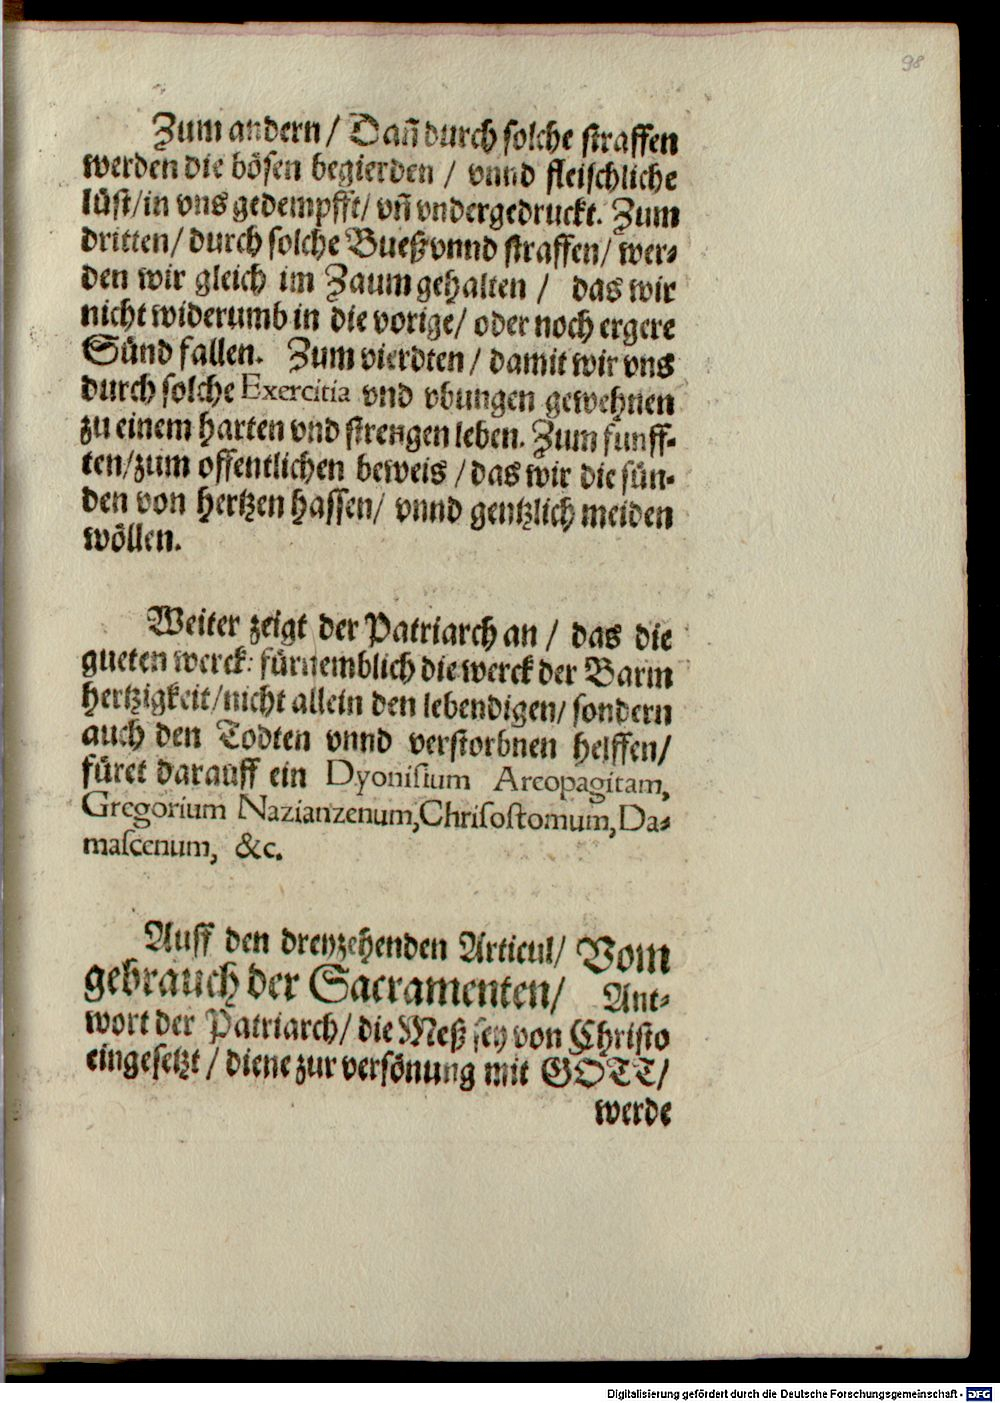 98
Zum andern / Dañ durch solche straffen
werden die bösen begierden / vnnd fleischliche
lüst/in vns gedempfft/ vñ vndergedruckt. Zum
dritten/ durch solche Bueß vnnd straffen/ wer-
den wir gleich im Zaum gehalten / das wir
nicht widerumb in die vorige/ oder noch ergere
Sünd fallen. Zum vierdten / damit wir vns
durch solche Exercitia vnd vbungen gewehnen
zu einem harten vnd strengen leben. Zum funff-
ten/zum offentlichen beweis / das wir die sün-
den von hertzen hassen/ vnnd gentzlich meiden
wöllen.
Weiter zeigt der Patriarch an / das die
gueten werck: fürnemblich die werck der Barm
hertzigkeit/nicht allein den lebendigen/ sondern
auch den Todten vnnd verstorbnen helffen/
füret darauff ein Dyonisium Areopagitam,
Gregorium Nazianzenum,Chrisostomum,Da-
mascenum, &c.
Auff den dreyzehenden Articul/ Vom
gebrauch der Sacramenten/ Ant-
wort der Patriarch/ die Meß sey von Christo
eingesetzt / diene zur versönung mit GOTT/
werde
Digitalisierung gefördert durch die Deutsche Forschungsgemeinschaft - DFG